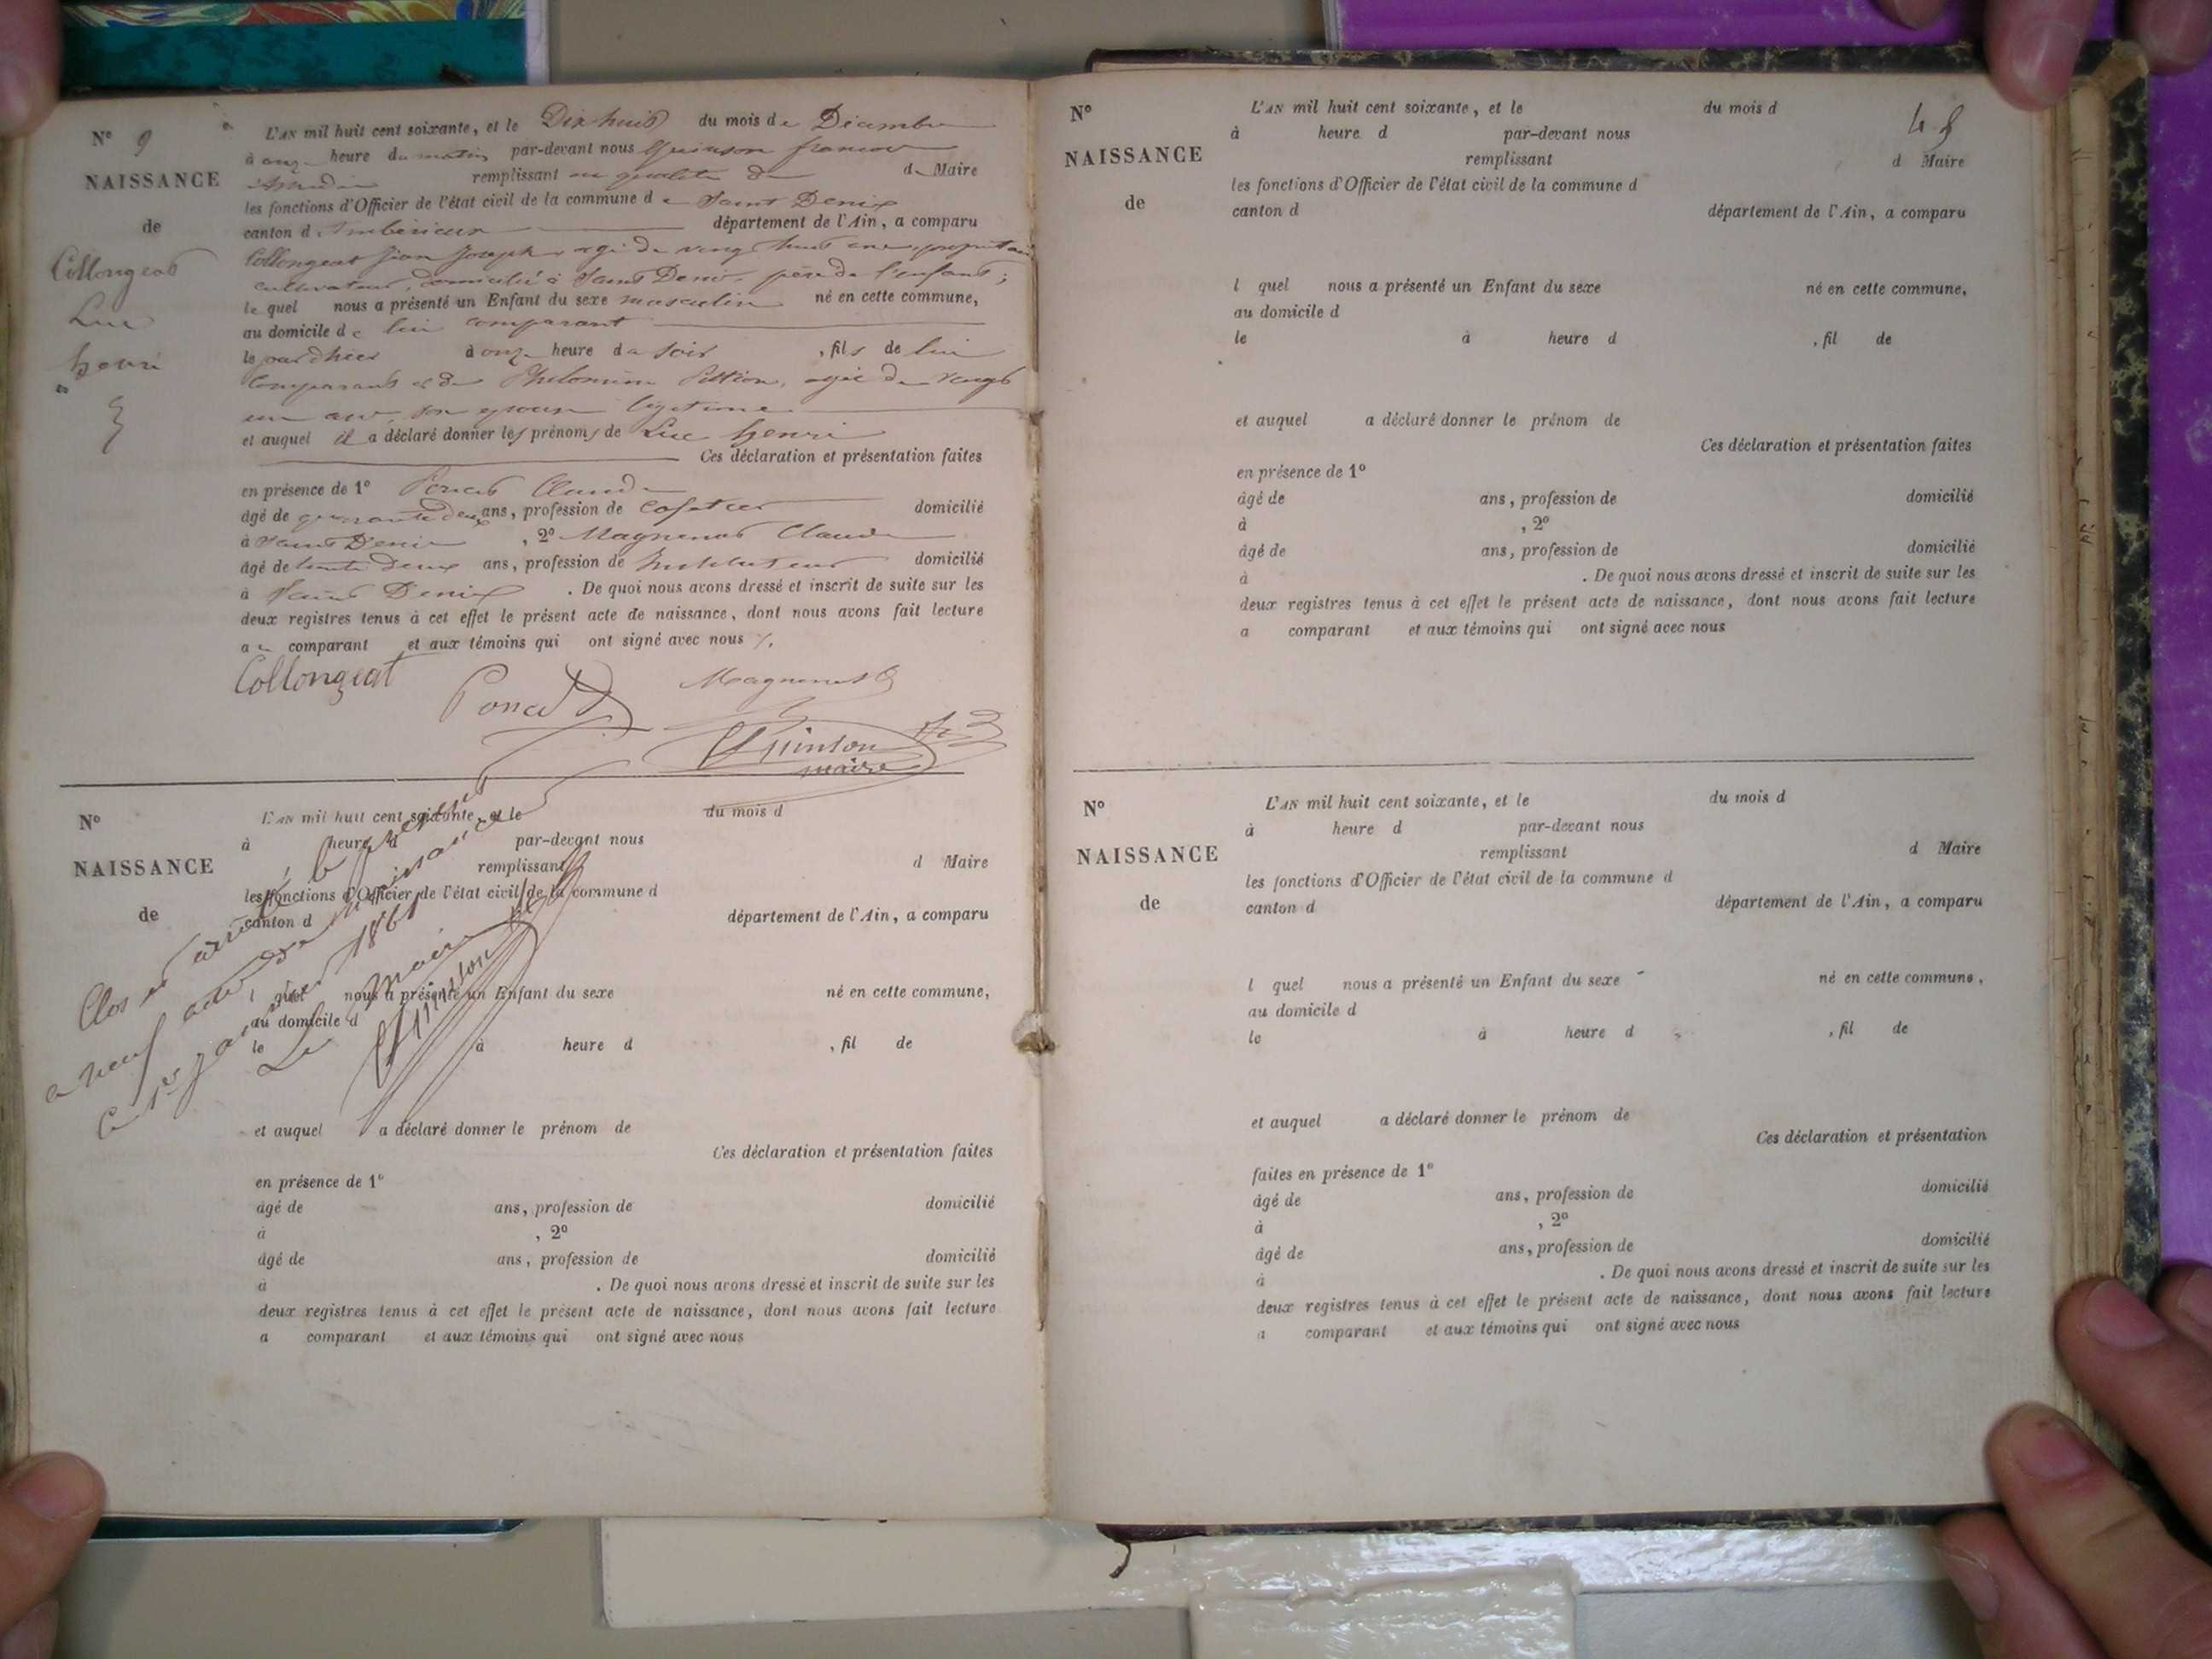 N° 9
NAISSANCE
de
Collongeat
Luc
henri
L'AN mil huit cent soixante, et le Dix huit du mois de Décembre
à onze heure du matin par-devant nous Quinson francois
Anselme remplissant en qualité de de Maire
les fonctions d'Officier de l'état civil de la commune de Saint Denis
canton d'Ambérieux département de l'Ain, a comparu
Collongeat Jean Joseph agé de vingt huit ans, propriétaire
cultivateur, domicilié à Saint Denis, père de l'enfant;
lequel nous a présenté un Enfant du sexe masculin né en cette commune,
au domicile de lui comparant
le jour d'hier à onze heure du soir, fils de lui
comparant et de Philomène Pittion, agée de vingt
un ans, son épouse légitime
et auquel il a déclaré donner les prénoms de Luc henri
Ces déclaration et présentation faites
en présence de 1° Poncet Claude
âgé de quarante deux ans, profession de Cafetier domicilié
à Saint Denis, 2° Magnenot Claude
âgé de trente deux ans, profession de Instituteur domicilié
à Saint Denis. De quoi nous avons dressé et inscrit de suite sur les
deux registres tenus à cet effet le présent acte de naissance, dont nous avons fait lecture
au comparant et aux témoins qui ont signé avec nous
Collongeat
Poncet
Magnenot
Quinson
maire
N°
NAISSANCE
de
L'AN mil huit cent soixante, et le du mois d
à heure d par-devant nous
remplissant d Maire
les fonctions d'Officier de l'état civil de la commune d
canton d département de l'Ain, a comparu
l quel nous a présenté un Enfant du sexe né en cette commune,
au domicile d
le à heure d , fil de
et auquel a déclaré donner le prénom de
Ces déclaration et présentation faites
en présence de 1°
âgé de ans, profession de domicilié
à , 2°
âgé de ans, profession de domicilié
à . De quoi nous avons dressé et inscrit de suite sur les
deux registres tenus à cet effet le présent acte de naissance, dont nous avons fait lecture
a comparant et aux témoins qui ont signé avec nous
Clos et arrêté le présent
a neuf actes de naissance
Ce 1er Janvier 1861
Le Maire
Quinson
48
N°
NAISSANCE
de
L'AN mil huit cent soixante, et le du mois d
à heure d par-devant nous
remplissant d Maire
les fonctions d'Officier de l'état civil de la commune d
canton d département de l'Ain, a comparu
l quel nous a présenté un Enfant du sexe né en cette commune,
au domicile d
le à heure d , fil de
et auquel a déclaré donner le prénom de
Ces déclaration et présentation faites
en présence de 1°
âgé de ans, profession de domicilié
à , 2°
âgé de ans, profession de domicilié
à . De quoi nous avons dressé et inscrit de suite sur les
deux registres tenus à cet effet le présent acte de naissance, dont nous avons fait lecture
a comparant et aux témoins qui ont signé avec nous
N°
NAISSANCE
de
L'AN mil huit cent soixante, et le du mois d
à heure d par-devant nous
remplissant d Maire
les fonctions d'Officier de l'état civil de la commune d
canton d département de l'Ain, a comparu
l quel nous a présenté un Enfant du sexe né en cette commune,
au domicile d
le à heure d , fil de
et auquel a déclaré donner le prénom de
Ces déclaration et présentation
faites en présence de 1°
âgé de ans, profession de domicilié
à , 2°
âgé de ans, profession de domicilié
à . De quoi nous avons dressé et inscrit de suite sur les
deux registres tenus à cet effet le présent acte de naissance, dont nous avons fait lecture
a comparant et aux témoins qui ont signé avec nous